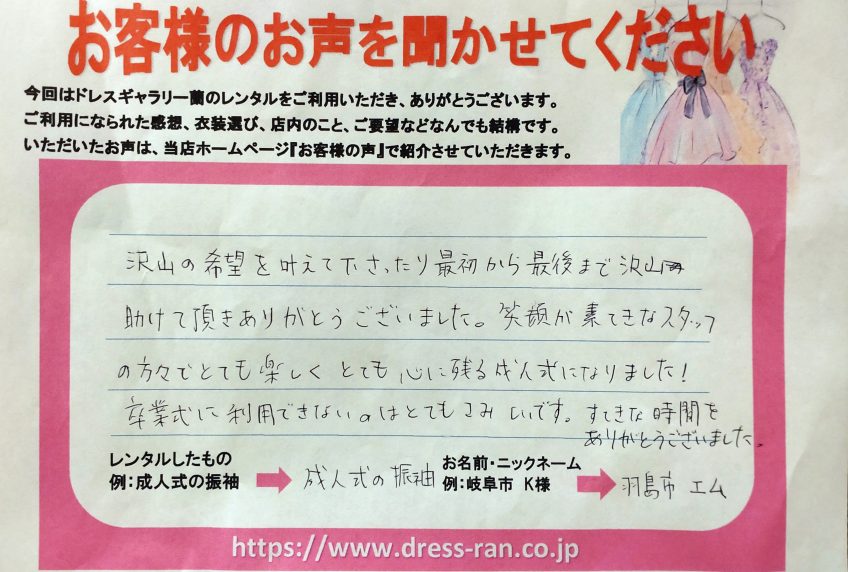 お客様のお声を聞かせてください
今回はドレスギャラリー蘭のレンタルをご利用いただき、ありがとうございます。
ご利用になられた感想、衣装選び、店内のこと、ご要望などなんでも結構です。
いただいたお声は、当店ホームページ『お客様の声』で紹介させていただきます。
沢山の希望を叶えて下さったり最初から最後まで沢山
助けて頂きありがとうございました。笑顔が素てきなスタッフ
の方々でとても楽しくとても心に残る成人式になりました!
卒業式に利用できないのはとてもさみしいです。すてきな時間を
ありがとうございました。
レンタルしたもの
例:成人式の振袖
成人式の振袖
お名前・ニックネーム
例:岐阜市 K様
羽島市 エム
https://www.dress-ran.co.jp